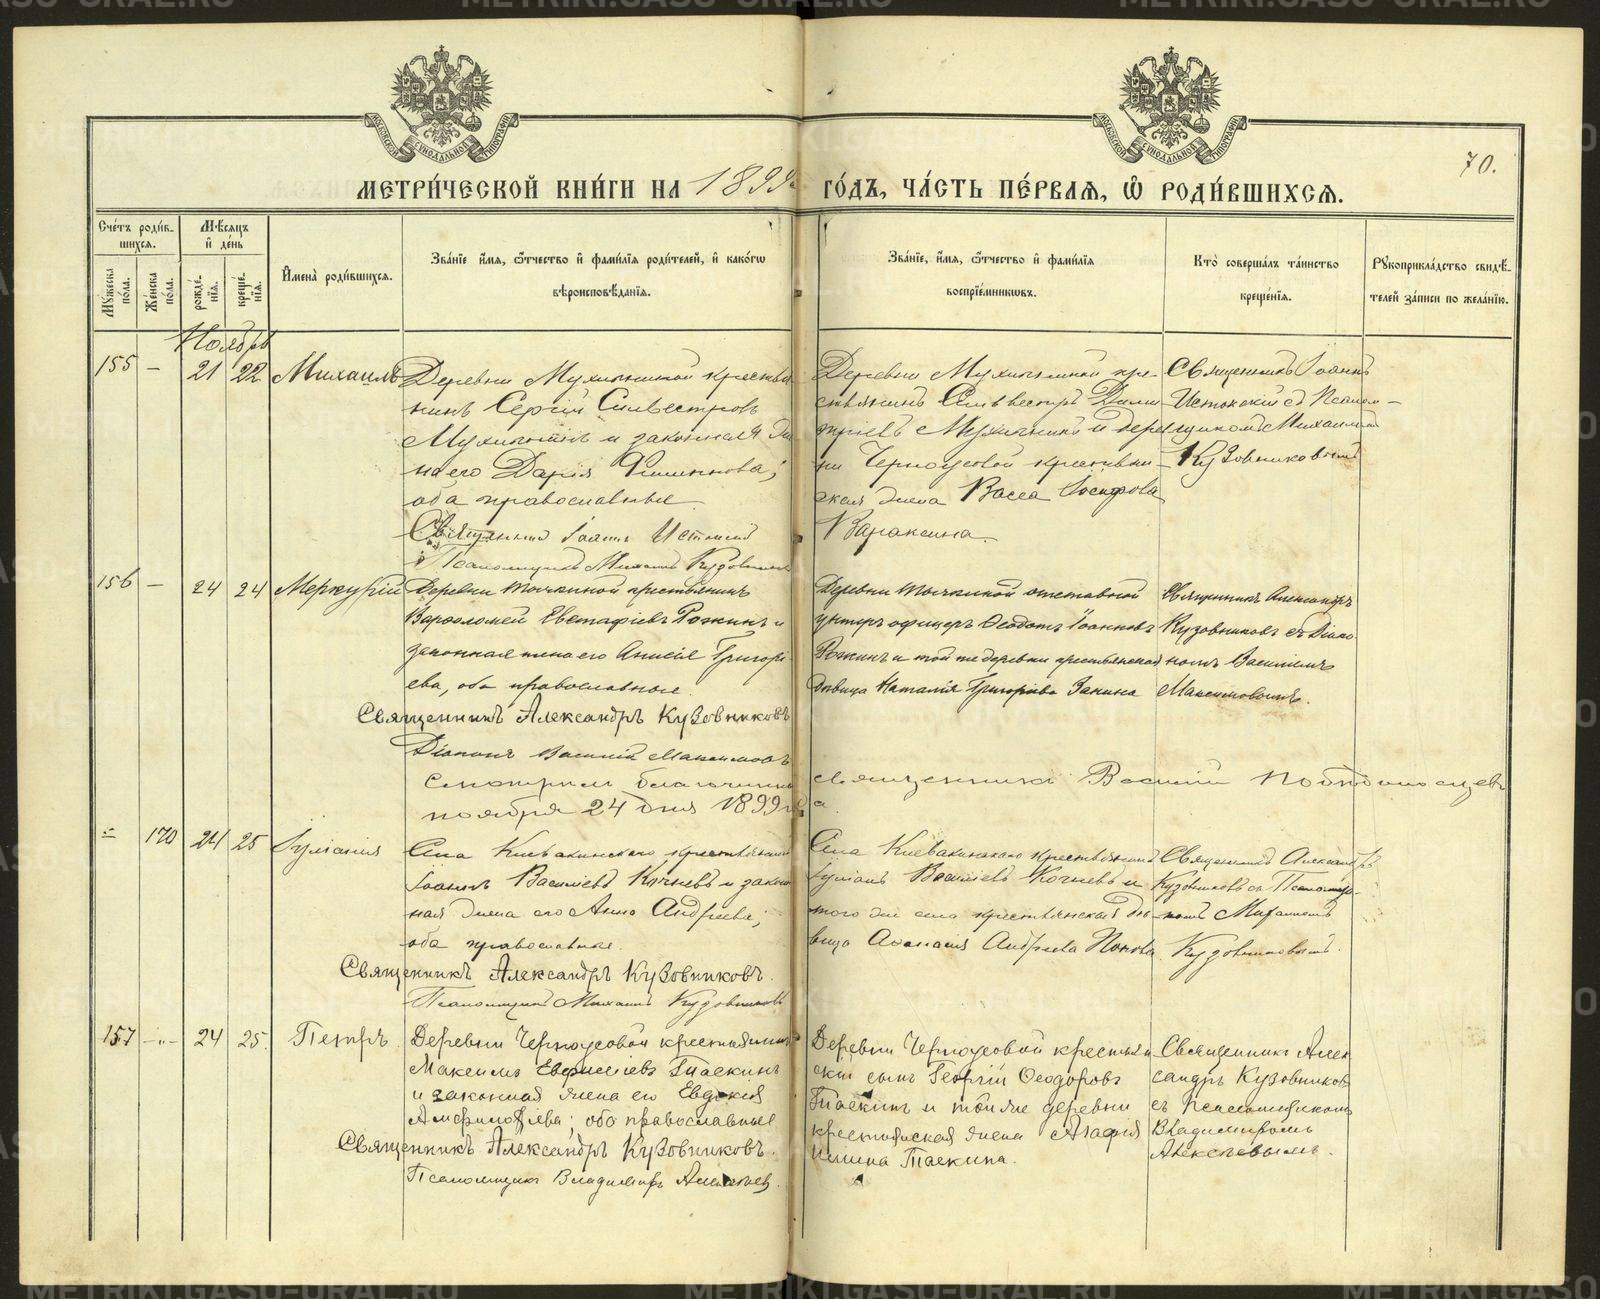 МЕТРИ́ЧЕСКОЙ КНИ́ГИ НА 1899 ГО́ДЪ, ЧА́СТЬ ПЕ́РВАЯ, Ѿ РОДИ́ВШИХСЯ.
70.
Сче́тъ роди́в-
шихся.
Мѣсяцъ
и҆ де́нь
Му́жеска по́ла.
Же́нска по́ла.
рожде́нїѧ.
креще́нїѧ.
И҆мена̀ роди́вшихся.
Зва́нїе и҆́мѧ, ѻ҆́тчество и҆ фами́лїѧ роди́телей, и҆ како́гѡ
вѣроисповѣ́данїѧ.
Зва́нїе, и҆́мѧ, ѻ҆́тчество и҆ фами́лїѧ
воспрїе́мникѡвъ.
Кто̀ соверша́лъ та́инство
креще́нїѧ.
Рꙋкоприкла́дство свидѣ́-
телей за́писи по жела́нїю.
Ноябрь
155 — 21 22 Михаилъ
Деревни Мухиной крестья-
нинъ Сергій Сильвестровъ
и законная же-
на его Дарія
оба православные
Священникъ Іоаннъ Истокскій
Псаломщикъ Михаилъ Кузовниковъ
Деревни кре-
стьянинъ Сильвестръ Дими-
тріевъ и дерев-
ни Черноусовой крестьян-
ская жена Васса Іосифова
Вараксина.
Священникъ Іоаннъ
Истокскій съ Псалом-
щикомъ Михаиломъ
Кузовниковымъ
156 — 24 24 Меркурій
Деревни Точкиной крестьянинъ
Варѳоломей Евстафіевъ Рожинъ и
законная жена его Анисія Григорі-
ева, оба православные.
Священникъ Александръ Кузовниковъ
Діаконъ Василій Максимовъ
Деревни Точкиной отставной
унтеръ офицеръ Ѳеодотъ Іоанновъ
Рожинъ и той же деревни крестьянская
дѣвица Наталія Григоріева Занина
Священникъ Александръ
Кузовниковъ съ Діако-
номъ Василіемъ
Максимовымъ.
смотрилъ благочинный священникъ Василій
ноября 24 дня 1899 года
— 170 24 25 Іуліанія
Села Кисвакинскаго крестьянинъ
Іоаннъ Василіевъ Кочневъ и закон-
ная жена его Анна Андреева;
оба православные.
Священникъ Александръ Кузовниковъ.
Псаломщикъ Михаилъ Кузовниковъ
Села крестьянинъ
Іуліанъ Василіевъ Кочневъ и
того же села крестьянская дѣ-
вица Аѳанасія Андреева Попова
Священникъ Александръ
Кузовниковъ съ Псаломщи-
комъ Михаиломъ
Кузовниковымъ.
157 -"- 24 25. Петръ
Деревни Черноусовой крестьянинъ
Максимъ Таскинъ
и законная жена его Евдокія
оба православные
Священникъ Александръ Кузовниковъ.
Псаломщикъ Владимиръ Алексѣевъ.
Деревни Черноусовой крестьян-
скій сынъ Георгій Ѳеодоровъ
Таскинъ и той же деревни
крестьянская жена Агафія
Ильина Таскина.
Священникъ Алек-
сандръ Кузовниковъ
съ Псаломщикомъ
Владимиромъ
Алексѣевымъ.